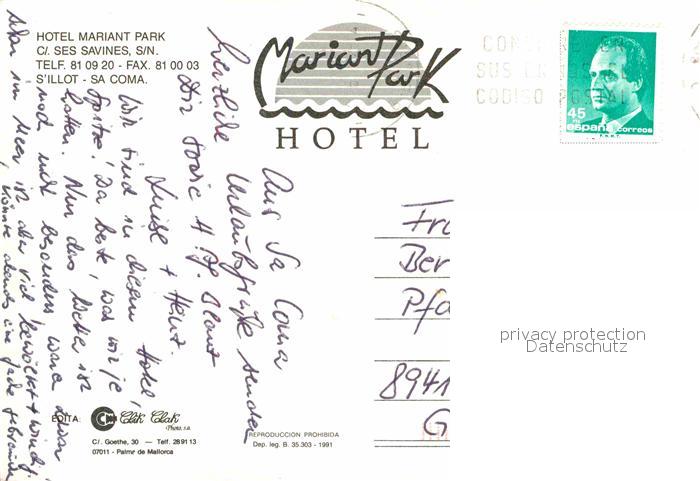 HOTEL MARIANT PARK
C/. SES SAVINES, S/N.
TELF. 81 09 20 - FAX. 81 00 03
S'ILLOT - SA COMA.
Mariant Park
HOTEL
SUS
CODIGO POSTAL
45
españa correos
Aus Sa Coma
Urlaubsgrüße senden
herzliche
Dir sowie
Luise + Heinz.
Wir sind in diesem Hotel,
Spitze! Da beste, was wir je
hatten. Nur das Wetter ist
noch nicht besonders warm zwar
aber viel bewölkt + windig,
Fra
Ber
Pfa
8941
G
privacy protection
Datenschutz
EDITA:
Clik Clak
Photo, s.a.
C/. Goethe, 30 — Telf. 28 91 13
07011 - Palma de Mallorca
REPRODUCCION PROHIBIDA
Dep. leg. B. 35.303 - 1991